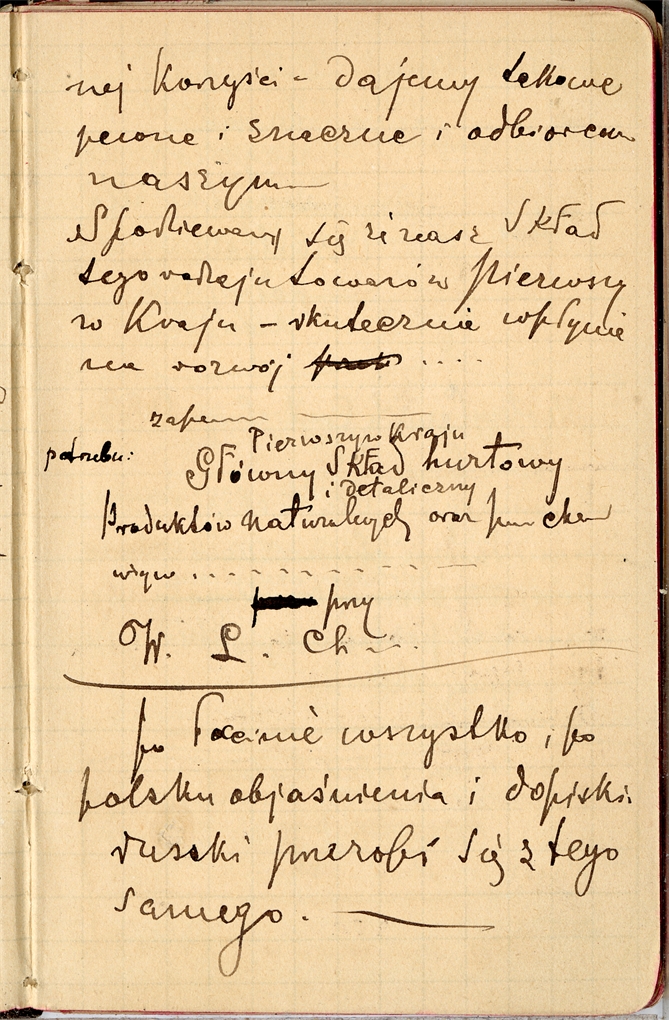 nej korzyści - dajemy takowe
pewne i znaczne i odbiorcom
naszym
Spodziewamy się że nasz Skład
tego rodzaju towarów pierwszy
w Kraju - skutecznie wpłynie
na rozwój ....
zapewn
Pierwszy w Kraju
potrzebn:
Główny Skład hurtowy
i detaliczny
Produktów naturalnych oraz
więw . . . . . . . . .
przy
W. L. Ch...
po łacinie wszystko, po
polsku objaśnienia i dopiski.
russki przerobi się z tego
samego.